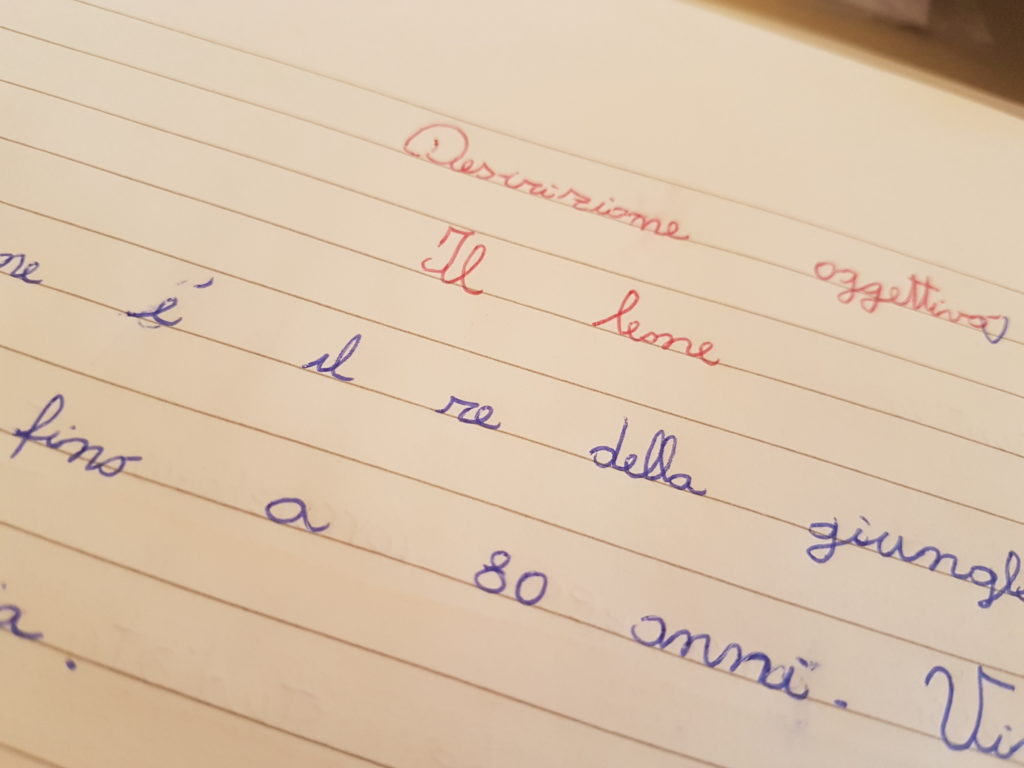 Descrizione oggettiva
Il leone
ne è il re della giungla
fino a 80 anni. Vi
a.